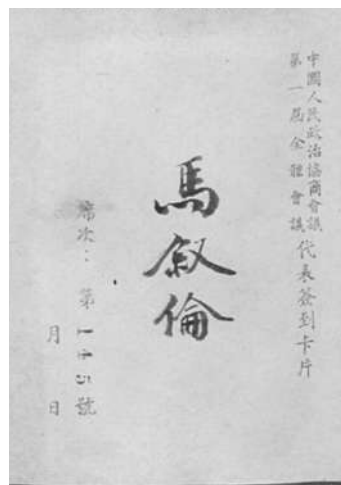 中國人民政治協商會議
第一屆全體會議
代表簽到卡片
馬叙倫
席次：第145號
月日